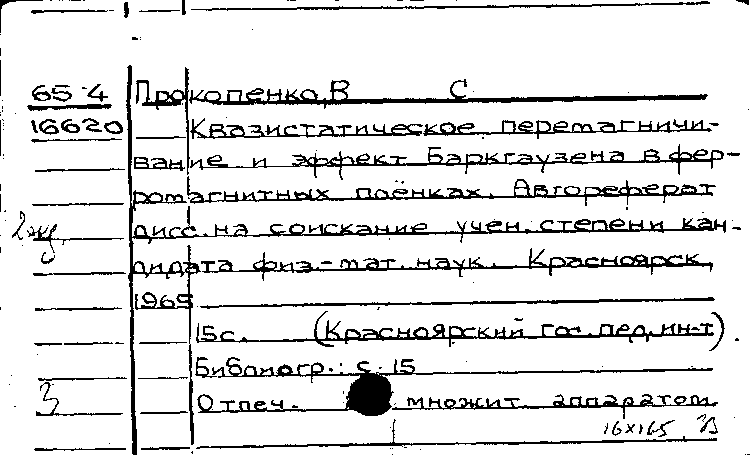 65-4 Прокопенко, В С
16620 Квазистатическое перемагничи-
вание и эффект Баркгаузена в фер-
ромагнитных плёнках. Автореферат
2 экз. дисс. на соискание учен. степени кан-
дидата физ.-мат. наук. Красноярск,
1965
15с. (Красноярский гос. пед. ин-т).
Библиогр.: с. 15
Отпеч. множит. аппаратом
16х165